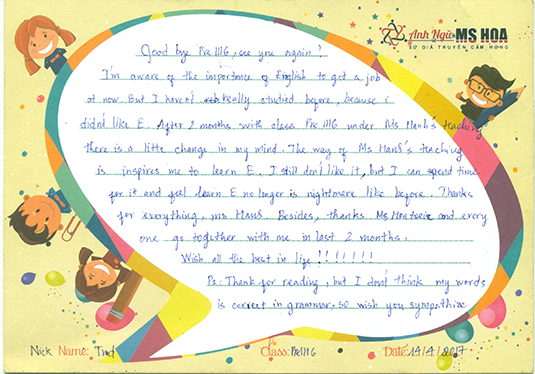 Anh Ngữ MS HOA
SỨ GIẢ TRUYỀN CẢM HỨNG
Good bye Pre 1116, see you again!
I'm aware of the importance of English to get a job
at now. But I haven't really studied before, because i
didn't like E. After 2 months with class Pre 1116 under Ms Hanh's teaching
there is a litte change in my mind. The way of Ms Hanh's teaching
is inspires me to learn E. I still don't like it, but I can spend time
for it and feel learn E no longer is nightmare like before. Thanks
for everything, ms Hanh. Besides, thanks Ms and every
one go together with me in last 2 months.
Wish all the best in life !!!!!!!
Ps: Thank for reading, but I don't think my words
is correct in grammar, so wish you sympathize
Nick Name: Class: Pre 1116 Date: 14/4/2017